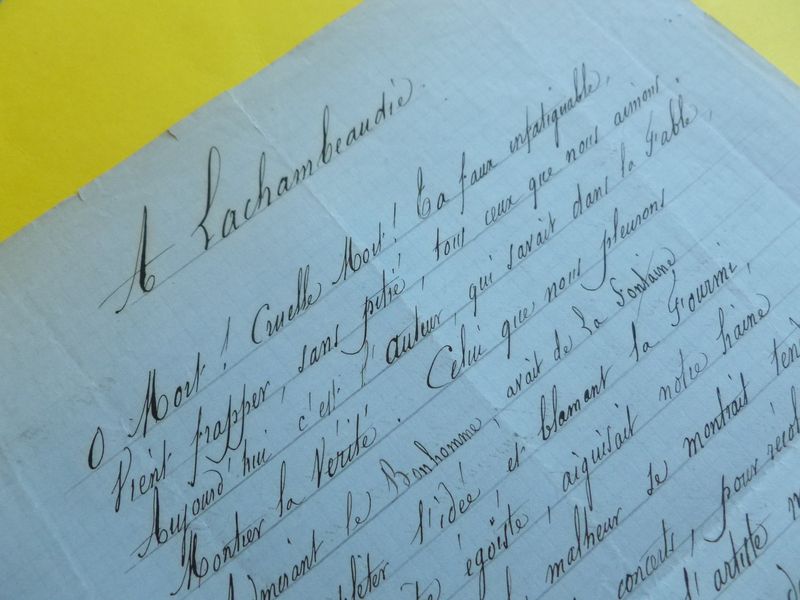 A Lachambeaudie.
O Mort! Cruelle Mort! Ta faux infatiguable,
Vient frapper, sans pitié, tous ceux que nous aimons.
Aujourd'hui c'est l'auteur, qui savait dans la Fable,
Montrer la Vérité. Celui que nous pleurons
Admirant le Bonhomme, avait de La Fontaine,
l'idée, et blamant la Fourmi,
égoïste, aiguisait notre haine
malheur se montrait
concerts, pour
l'artiste